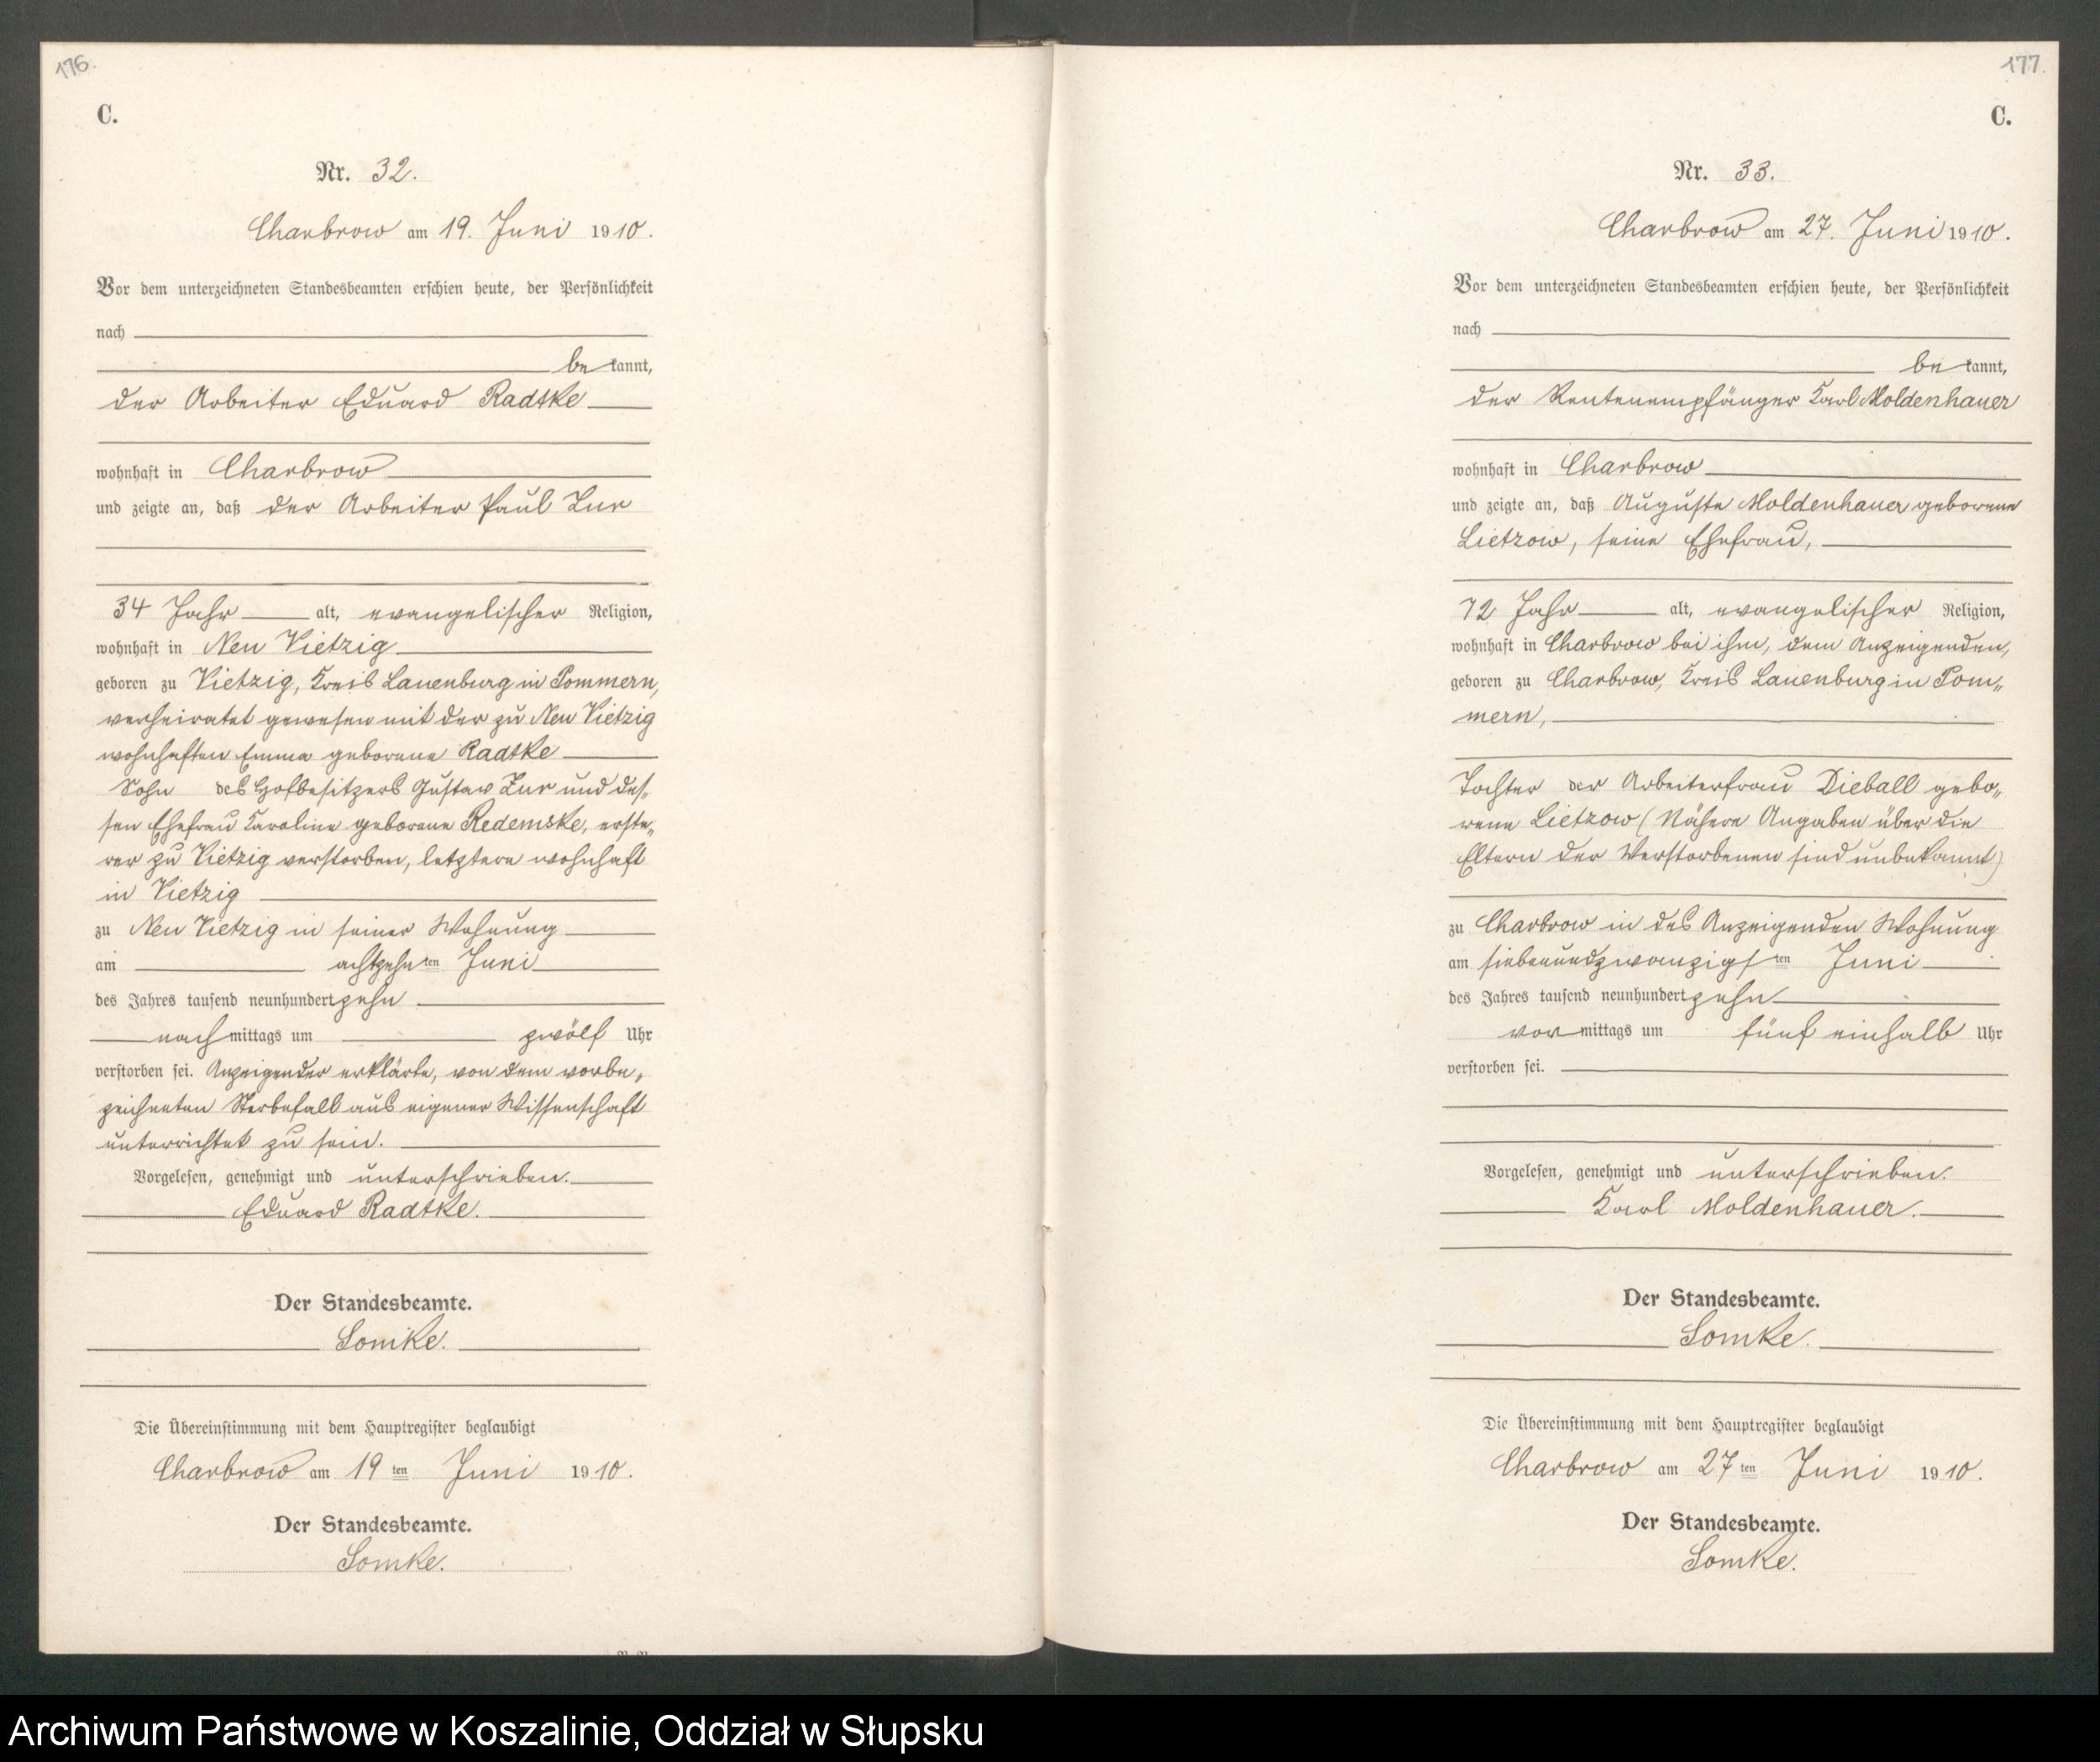 176.
C.
Nr. 32.
Charbrow am 19. Juni 1910.
Vor dem unterzeichneten Standesbeamten erschien heute, der Persönlichkeit
nach
be kannt,
der Arbeiter Eduard Radtke
wohnhaft in Charbrow
und zeigte an, daß der Arbeiter Paul Zur
34 Jahr alt, evangelischer Religion,
wohnhaft in Neu Vietzig
geboren zu Vietzig, Kreis Lauenburg in Pommern,
verheiratet gewesen mit der zu Neu Vietzig
wohnhaften Emma geborene Radtke
Sohn des Hofbesitzers Gustav Zur und des-
sen Ehefrau Karoline geborene Redemske, erste-
rer zu Vietzig verstorben, letztere wohnhaft
in Vietzig
zu Neu Vietzig in seiner Wohnung
am achtzehnten Juni
des Jahres tausend neunhundert zehn
nachmittags um zwölf Uhr
verstorben sei. Anzeigender erklärte, von dem vorbe-
zeichneten Sterbefall aus eigener Wissenschaft
unterrichtet zu sein.
Vorgelesen, genehmigt und unterschrieben.
Eduard Radtke.
Der Standesbeamte.
Lomke.
Die Übereinstimmung mit dem Hauptregister beglaubigt
Charbrow am 19ten Juni 1910.
Der Standesbeamte.
Lomke.
177.
C.
Nr. 33.
Charbrow am 27. Juni 1910.
Vor dem unterzeichneten Standesbeamten erschien heute, der Persönlichkeit
nach
be kannt,
der Rentenempfänger Karl Moldenhauer
wohnhaft in Charbrow
und zeigte an, daß Auguste Moldenhauer geborene
Lietzow, seine Ehefrau,
72 Jahr alt, evangelischer Religion,
wohnhaft in Charbrow bei ihm, dem Anzeigenden,
geboren zu Charbrow, Kreis Lauenburg in Pom-
mern,
Tochter der Arbeiterfrau Dieball gebo-
rene Lietzow (Nähere Angaben über die
Eltern der Verstorbenen sind unbekannt)
zu Charbrow in des Anzeigenden Wohnung
am siebenundzwanzigsten Juni
des Jahres tausend neunhundert zehn
vormittags um fünf einhalb Uhr
verstorben sei.
Vorgelesen, genehmigt und unterschrieben.
Karl Moldenhauer.
Der Standesbeamte.
Lomke.
Die Übereinstimmung mit dem Hauptregister beglaubigt
Charbrow am 27ten Juni 1910.
Der Standesbeamte.
Lomke.
Archiwum Państwowe w Koszalinie, Oddział w Słupsku